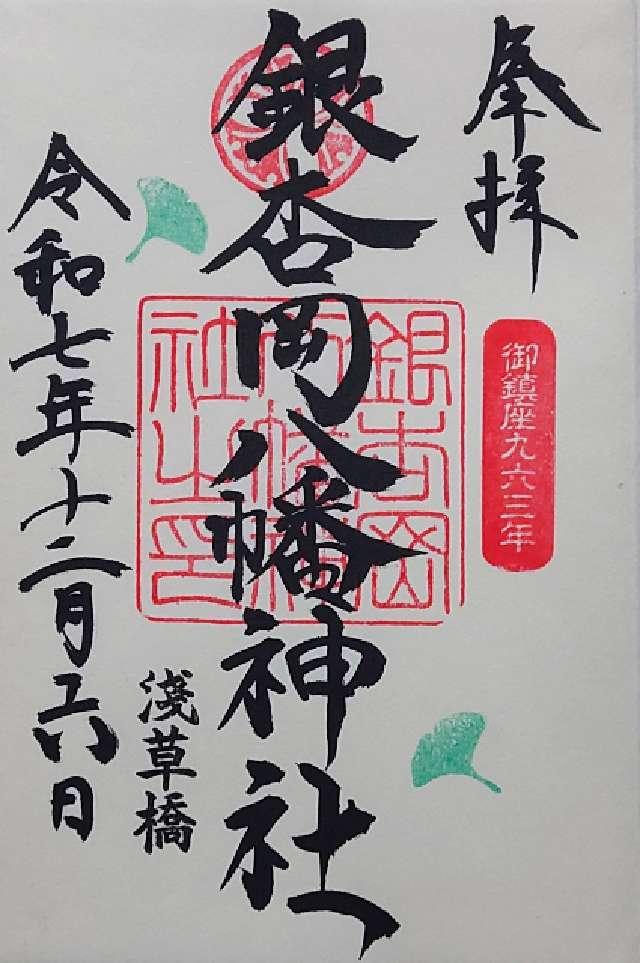 奉拝
御鎮座九六三年
銀杏岡八幡神社
銀杏岡
八幡神
社之印
浅草橋
令和七年十二月六日